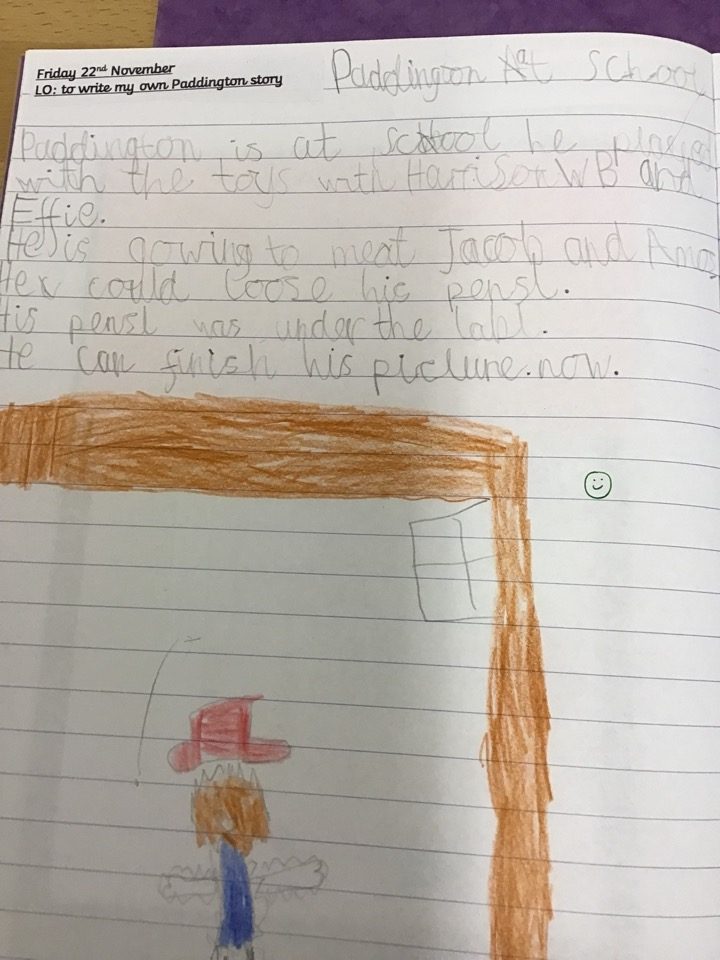 Friday 22nd November
LO: to write my own Paddington story
Paddington At School
Paddington is at school he played
with the toys with Harrison WB and
Effie.
He is gowing to meat Jacob and Amos
Hex could loose his pensl.
His pensl was under the tabl.
He can finish his picture.now.